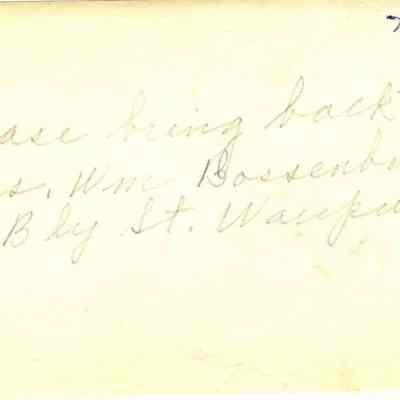 ase bring back
s. Wm Bossenb
B ly St. Waupu